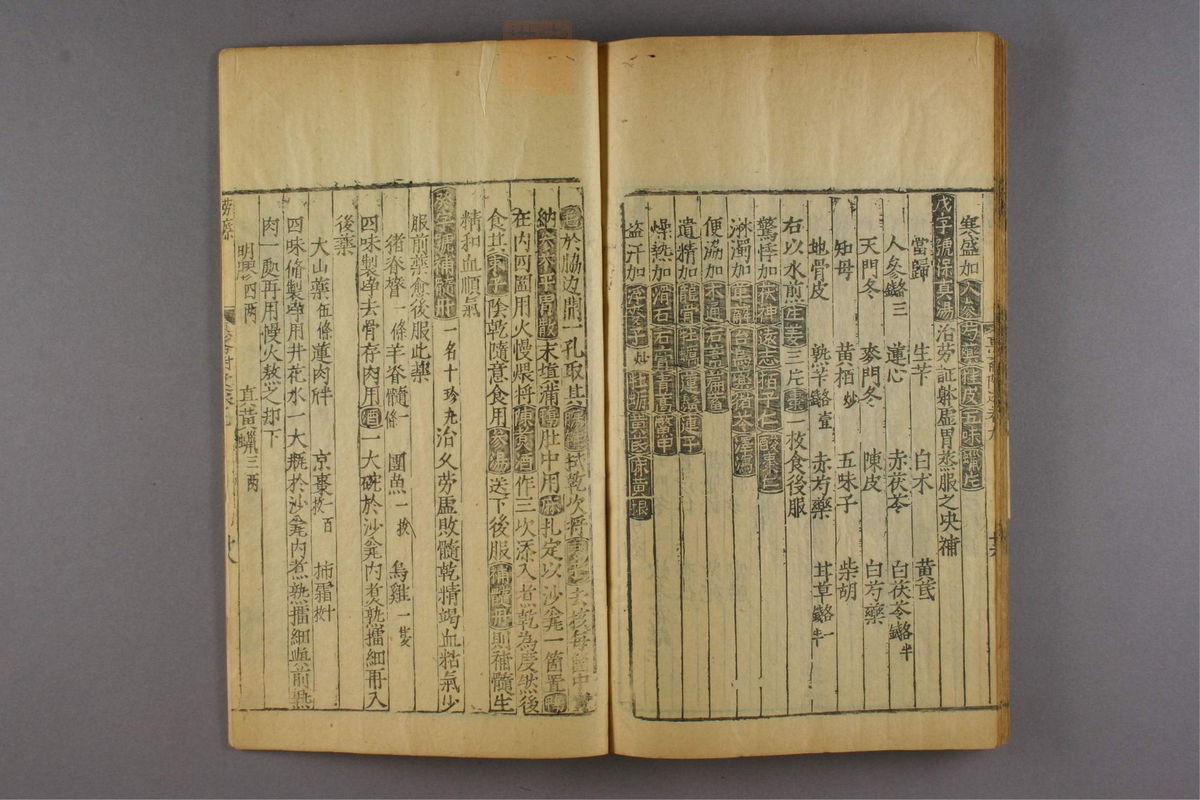 寒盛加人參芍藥桂皮五味
戊字號保真湯治勞証躰虛胃蒸服之央補
當歸 生芐 白术 黄茋
人參 三 蓮心 赤茯苓 白茯苓 半
天門冬 麥門冬 陳皮 白芍藥
知母 黄栢炒 五味子 柴胡
地骨皮 熟芐 壹 赤芍藥 甘草 一半
右以水煎生姜三片棗一枚食後服
驚悸加茯神遠志栢子仁酸棗仁
淋濁加萆薢台烏藥猪苓澤瀉
便澁加木通石韋萹蓄
遺精加龍骨牡蠣蓮鬚蓮子
燥熱加滑石石膏青蒿鱉甲
盗汗加浮麥子炒牡蠣黄茋麻黄根
於脇边開一孔取其 拭乾次將 去核每 中
納參苓平胃散末填蒲鴨肚中用麻扎定以沙瓮一箇置鴨
在内四圍用火慢煨將陳煑酒作三次添入煮乾為度然後
食其 子陰乾隨意食用參湯送下後服補髓丹則補髓生
精和血順氣
癸字號補髓丹一名十珍丸治久勞虛敗髓乾精竭血枯氣少
服前藥愈後服此藥
猪脊膂一條羊脊髓一條 團魚一枚 烏雞一隻
四味製凈去骨存肉用酒一大碗於沙瓮内煑孰擂細冉入
後藥
大山藥伍條蓮肉半 京棗一百枚 柿霜十枚
四味脩製凈用井花水一大瓶於沙瓮内煮熟擂細與前熟
肉一處再用慢火熬之却下
明 四两 直黄蠟三两